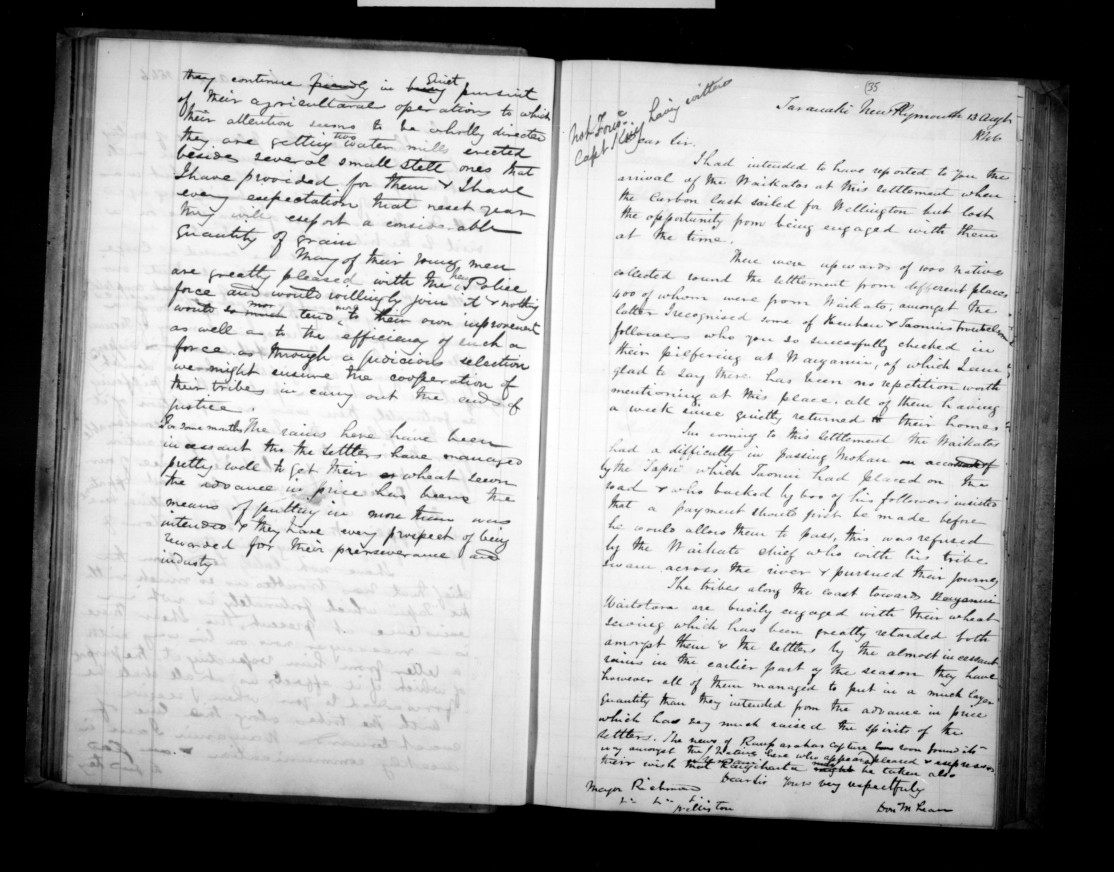 they continue friendly in being Quiet pursuit
of their agricultural operations to which
their attention seems to be wholly directed
they are getting two water mills erected
beside several small steel ones that
I have provided for them & I have
every expectation that next year
they will export a considerable
quantity of grain
Many of their young men
are greatly pleased with the new Police
force and would willingly join it & nothing
would so much tend more to their own improvement
as well as to the efficiency of such a
force as through a judicious selection
we might ensure the cooperation of
their tribes in carry out the ends of
justice.
For some months The rains here have been
incessant tho the settlers have managed
pretty well to get their wheat sown
the advance in price has been the
means of putting in more than was
intended & they have every prospect of being
rewarded for their perseverance and
industry
(35
Taranaki New Plymouth 13 Augt
1846
Not Forwd having written
Capt King
Dear Sir.
I had intended to have reported to you the
arrival of the Waikatos at this settlement when
the Carbon last sailed for Wellington but lost
the opportunity from being engaged with them
at the time.
There were upwards of 1000 natives
collected round the settlement from different places
400 of whom were from Waikato, amongst the
latter I recognised some of & Taonuis troublesome
followers who you so sucessfully checked in
their pilfering at Wanganui, of which I am
glad to say there has been no repetition worth
mentioning at this place, all of them having
a week since quietly returned to their homes
In coming to this settlement the Waikatos
had a difficulty in passing Mokau on account of
by the Tapu which Taonui had placed on the
road & who backed by 600 of his followers insisted
that a payment should first be made before
he would allow them to pass, this was refused
by the Waikato chief who with his tribe
swam across the river & pursued their journey
The tribes along the coast towards Wanganui
Waitotara are busily engaged with their wheat
sowing which has been greatly retarded both
amongst them & the settlers by the almost incessant
rains in the earlier part of the season they have
however all of them managed to put in a much larger
quantity than they intended from the advance in price
which has very much raised the spirits of the
settlers. The news of Rauparahas capture has soon found its
way amongst the Natives here who appeared pleased & expressed
their wish that Rangihaeta might be taken also
Dear Sir Yours very respectfully
Don McLean
Mayor Richmond
Willington